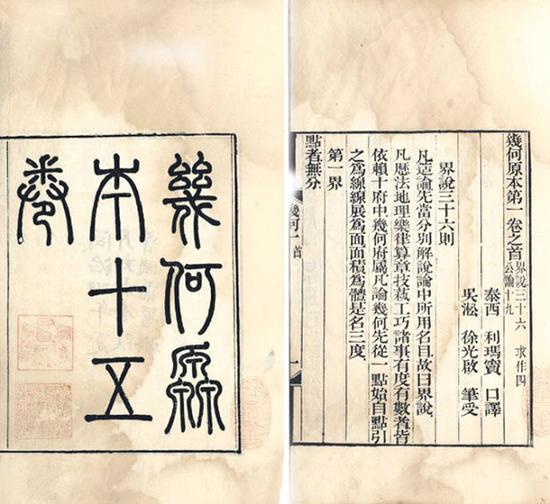 幾何原
本十五
卷
幾何原本第一卷之首 界說三十六 求作四
公論十九
泰西 利瑪竇 口譯
吳淞 徐光啟 筆受
界說三十六則
凡造論先當分別解說論中所用名目故曰界說
凡曆法地理樂律算章技藝工巧諸事有度有數者皆
依賴十府中幾何府屬凡論幾何先從一點始自點引
之為線線展為面面積為體是名三度
第一界
點者無分
幾何一 首